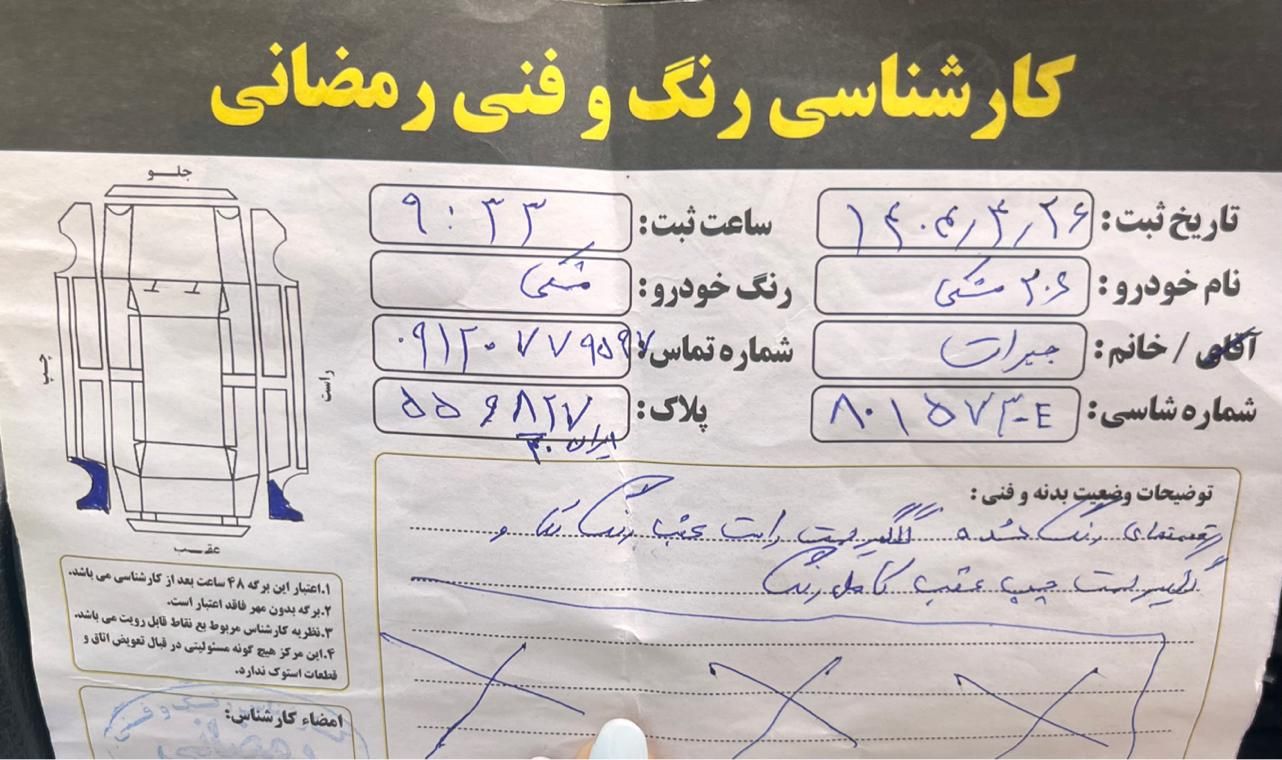 کارشناسی رنگ و فنی رمضانی
تاریخ ثبت: ۱۴۰۴/۴/۲۶
ساعت ثبت: ۹:۳۳
نام خودرو: ۲۰۶ مشکی
رنگ خودرو: مشکی
آقای / خانم: جیرات
شماره تماس: ۰۹۱۲۰۷۷۹۵۹۷
شماره شاسی: ۸۰۱۵۷۳-E
پلاک: ۵۵ ۶ ۸۲۷
ایران ۴۰
جلو
چپ
راست
عقب
توضیحات وضعیت بدنه و فنی:
قسمتهای رنگ شده گلگیر سمت راست عقب رنگ و
گلگیر سمت چپ عقب کامل رنگ
۱.اعتبار این برگه ۴۸ ساعت بعد از کارشناسی می باشد.
۲.برگه بدون مهر فاقد اعتبار است.
۳.نظریه کارشناس مربوط بع نقاط قابل رویت می باشد.
۴.این مرکز هیچ گونه مسئولیتی در قبال تعویض اتاق و
قطعات استوک ندارد.
امضاء کارشناس:
رمضانی